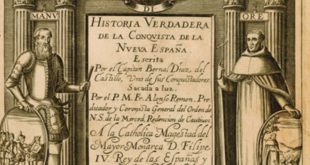 DI
MANV
ORE
HISTORIA VERDADERA
DE LA CONQVISTA DE LA
NVEVA ESPAÑA.
Escrita
Por el Capitan Bernal Diaz, del
Castillo, Vno de sus Conquistadores.
Sacada a luz,
Por el P. M. Fr. Alonso Remon, Pre-
dicador y Coronista General del Orden de
N. S. de la Merced, Redencion de Cautivos
A la Catholica Magestad del
Mayor Monarca D. Filipe
IV. Rey de las Españas y